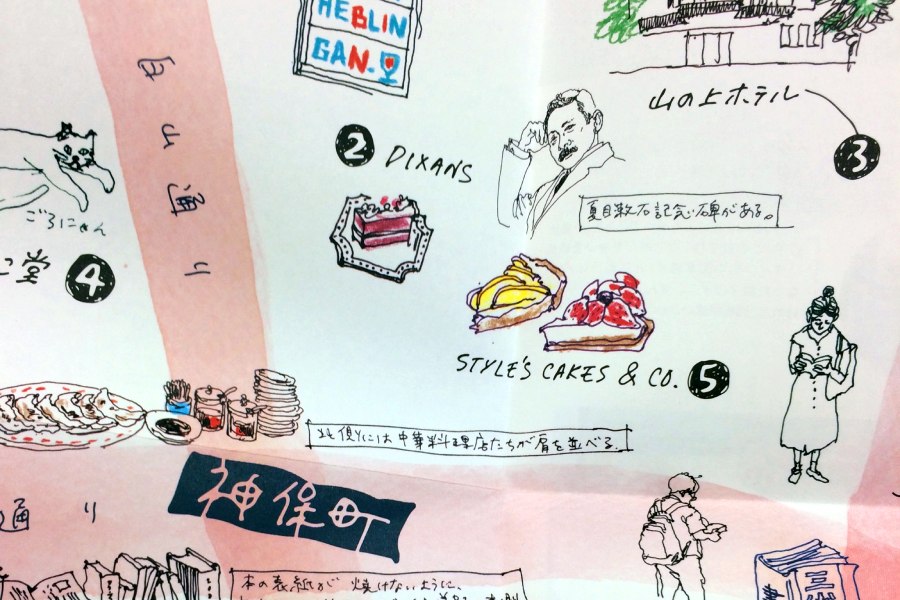 HEBLIN
GAN.
白山通り
山の上ホテル
2 DIXANS
3
夏目漱石記念碑がある。
ごろにゃん
堂 4
STYLE'S CAKES & CO. 5
北側には中華料理店たちが肩を並べる。
神保町
通り
本の表紙が焼けないように、